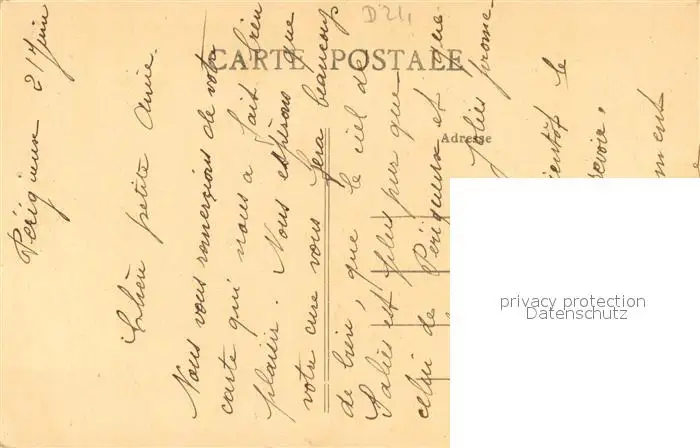 D24
CARTE POSTALE
Adresse
Périgueux 21 juin
Chère petite amie.
Nous vous remercions de votre
carte qui nous a fait bien
plaisir. Nous espérons que
votre cure vous fera beaucoup
de bien, que le ciel de
Salies est plus pur que
celui de Périgueux et que
jolies prome-
bientôt le
revoir,
privacy protection
Datenschutz